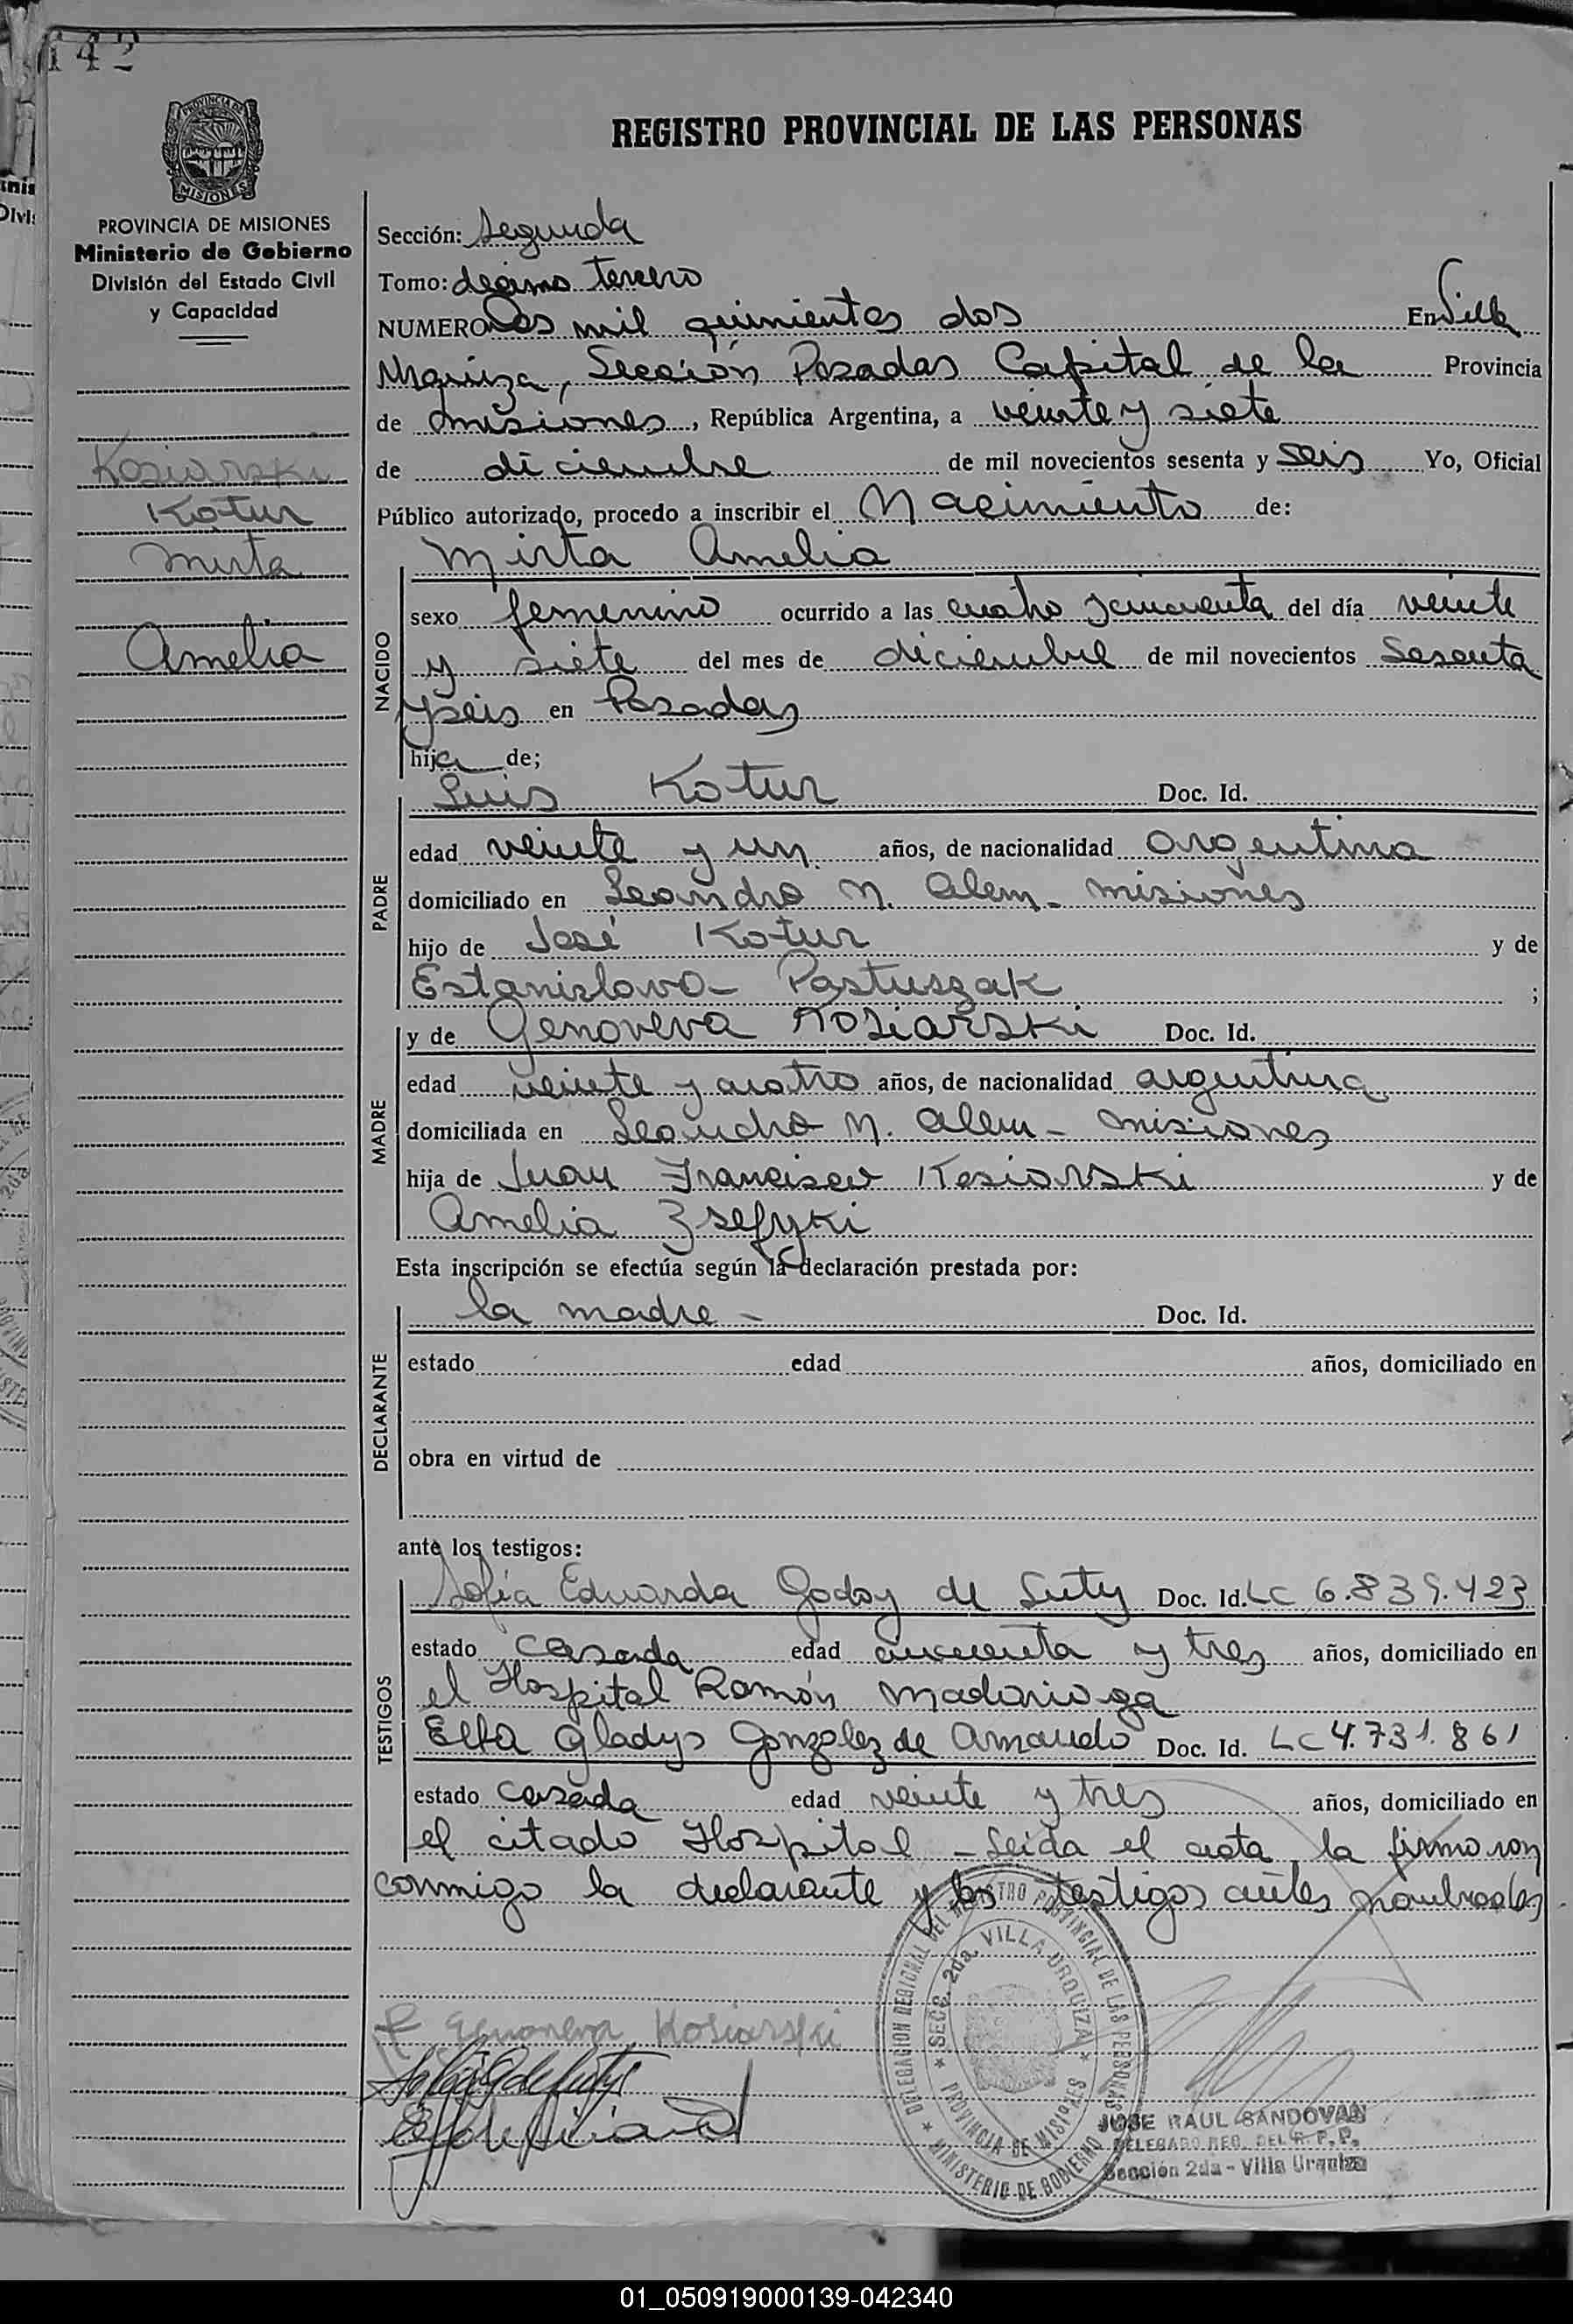 142
PROVINCIA DE MISIONES
REGISTRO PROVINCIAL DE LAS PERSONAS
PROVINCIA DE MISIONES
Ministerio de Gobierno
División del Estado Civil
y Capacidad
Kosiarski
Kotur
Mirta
Amelia
Sección: Segunda
Tomo: décimo tercero
NUMERO Dos mil quinientos dos En Villa
Urquiza, Sección Posadas Capital de la Provincia
de Misiones, República Argentina, a veinte y siete
de diciembre de mil novecientos sesenta y seis Yo, Oficial
Público autorizado, procedo a inscribir el Nacimiento de:
Mirta Amelia
NACIDO
sexo femenino ocurrido a las cuatro y cincuenta del día veinte
y siete del mes de diciembre de mil novecientos sesenta
y seis en Posadas
hija de;
PADRE
Luis Kotur Doc. Id.
edad veinte y un años, de nacionalidad argentina
domiciliado en Leandro N. Alem - Misiones
hijo de José Kotur y de
Estanislava Pastuszak ;
MADRE
y de Genoveva Kosiarski Doc. Id.
edad veinte y cuatro años, de nacionalidad argentina
domiciliada en Leandro N. Alem - Misiones
hija de Juan Francisco Kosiarski y de
Amelia
Esta inscripción se efectúa según la declaración prestada por:
DECLARANTE
la madre - Doc. Id.
estado edad años, domiciliado en
obra en virtud de
ante los testigos:
TESTIGOS
Sofía Eduarda Godoy de Suty Doc. Id. LC 6.839.423
estado casada edad cincuenta y tres años, domiciliado en
el Hospital Ramón Madariaga
Elba Gladys Gonzalez de Doc. Id. LC 4.731.861
estado casada edad veinte y tres años, domiciliado en
el citado Hospital - Leida el acta la firmaron
conmigo la declarante y los testigos antes nombrados
Genoveva Kosiarski
DELEGACION REGIONAL DEL REGISTRO PROVINCIAL DE LAS PERSONAS
MINISTERIO DE GOBIERNO
SECC. 2da. VILLA URQUIZA
PROVINCIA DE MISIONES
JOSE RAUL SANDOVAL
DELEGADO REG. DEL R. P. P.
Sección 2da - Villa Urquiza
01_050919000139-042340